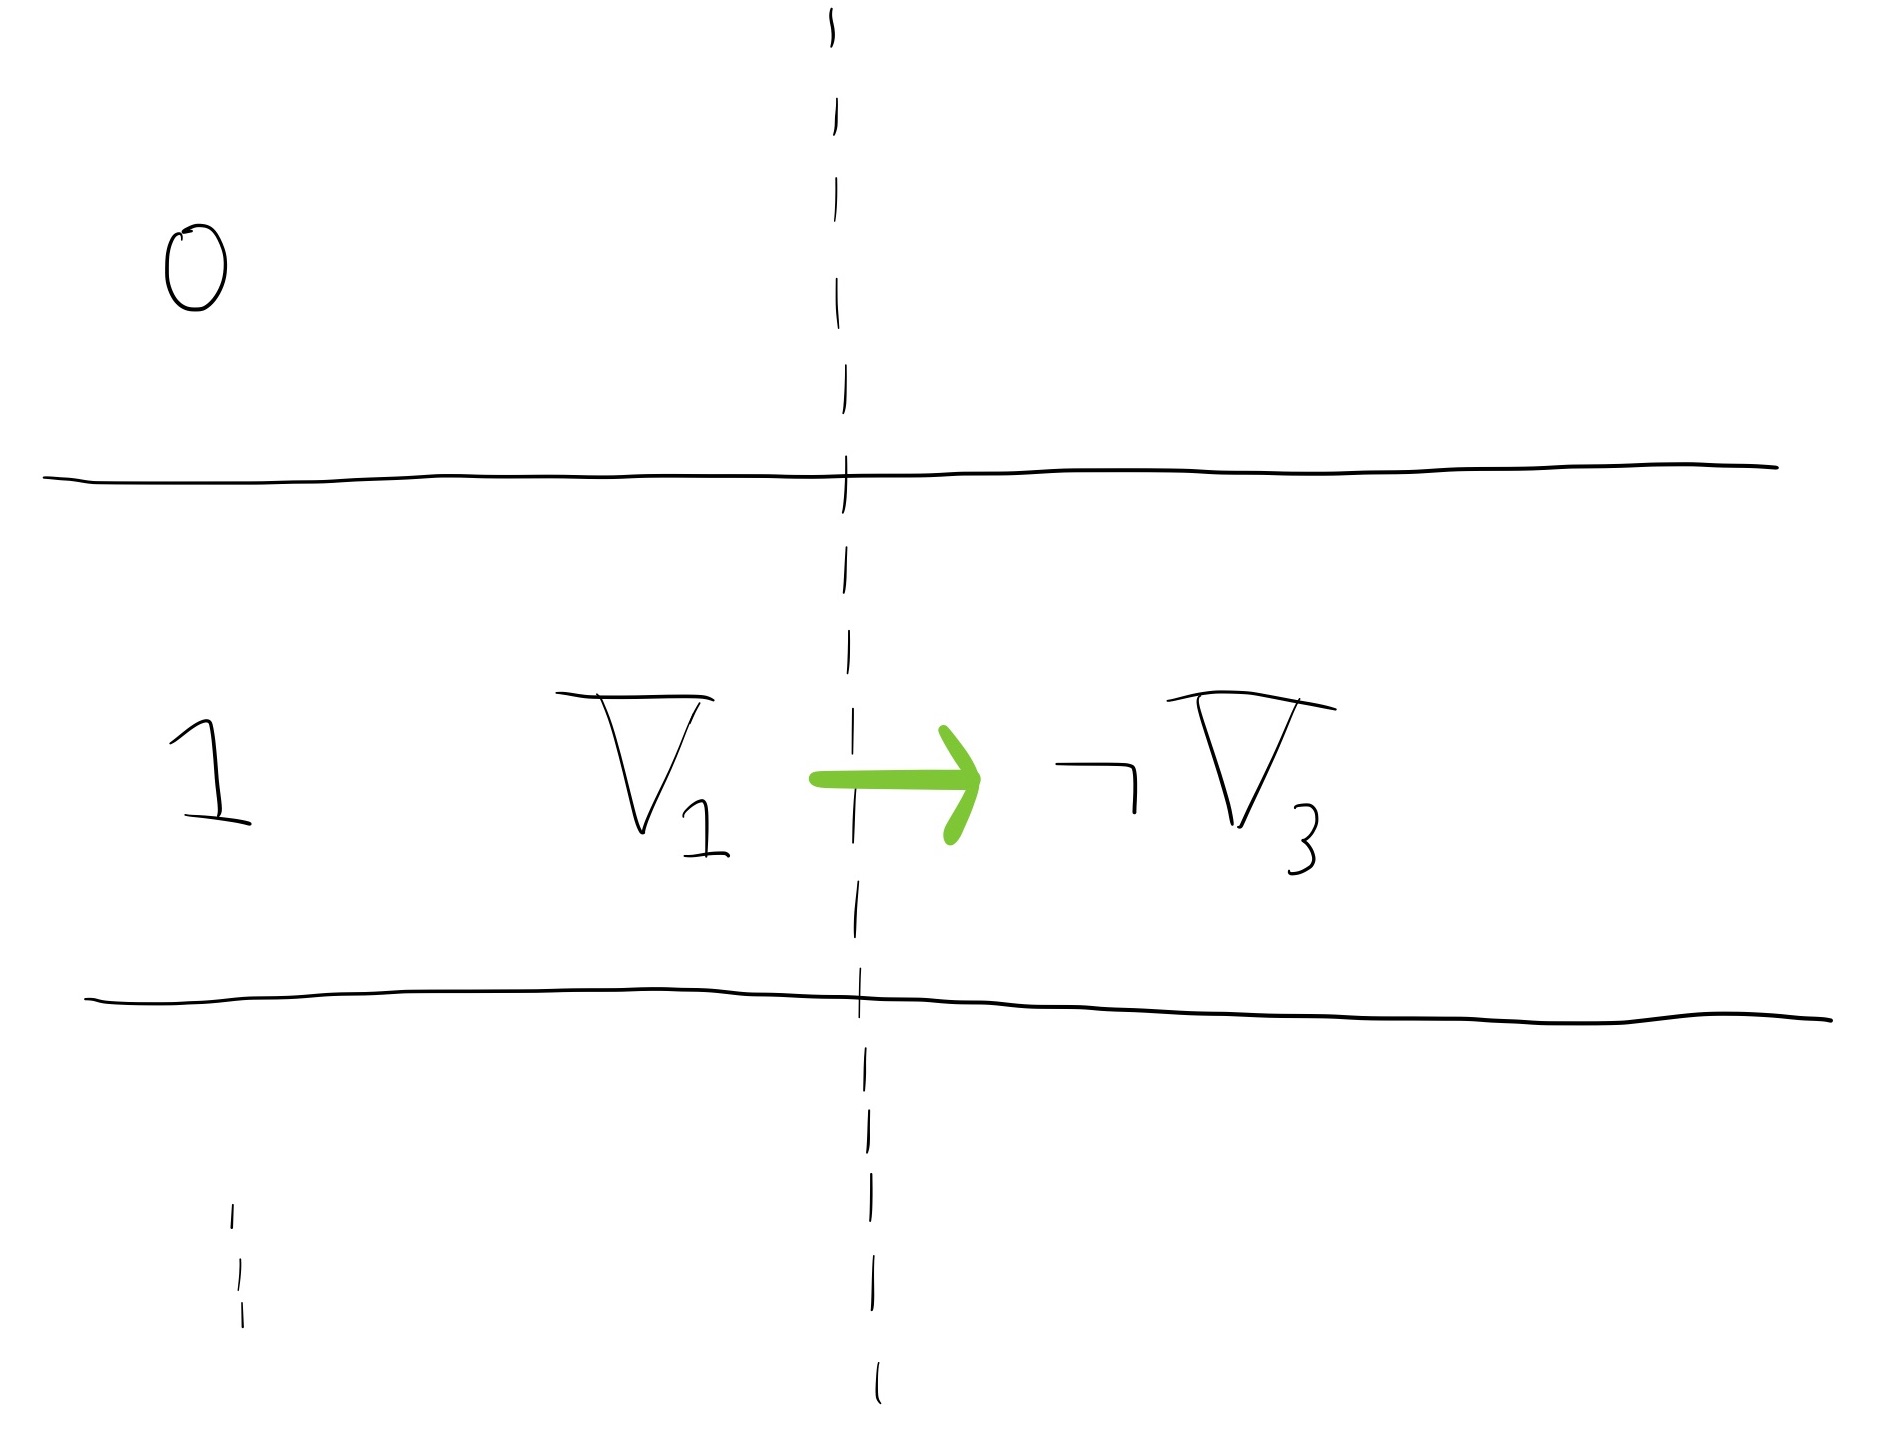 0
1 ∇₁ → ¬ ∇₃